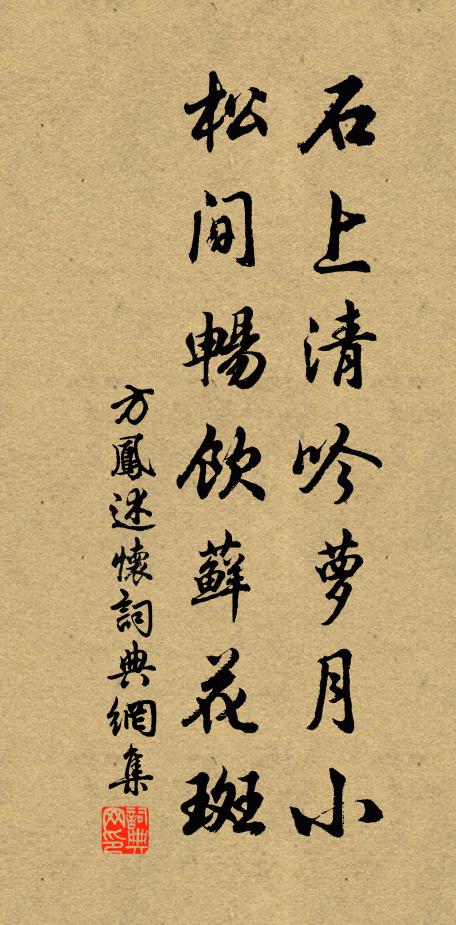 石上清吟萝月小
松间畅饮藓花斑
方鳳述懷詞典網集
詞典網印